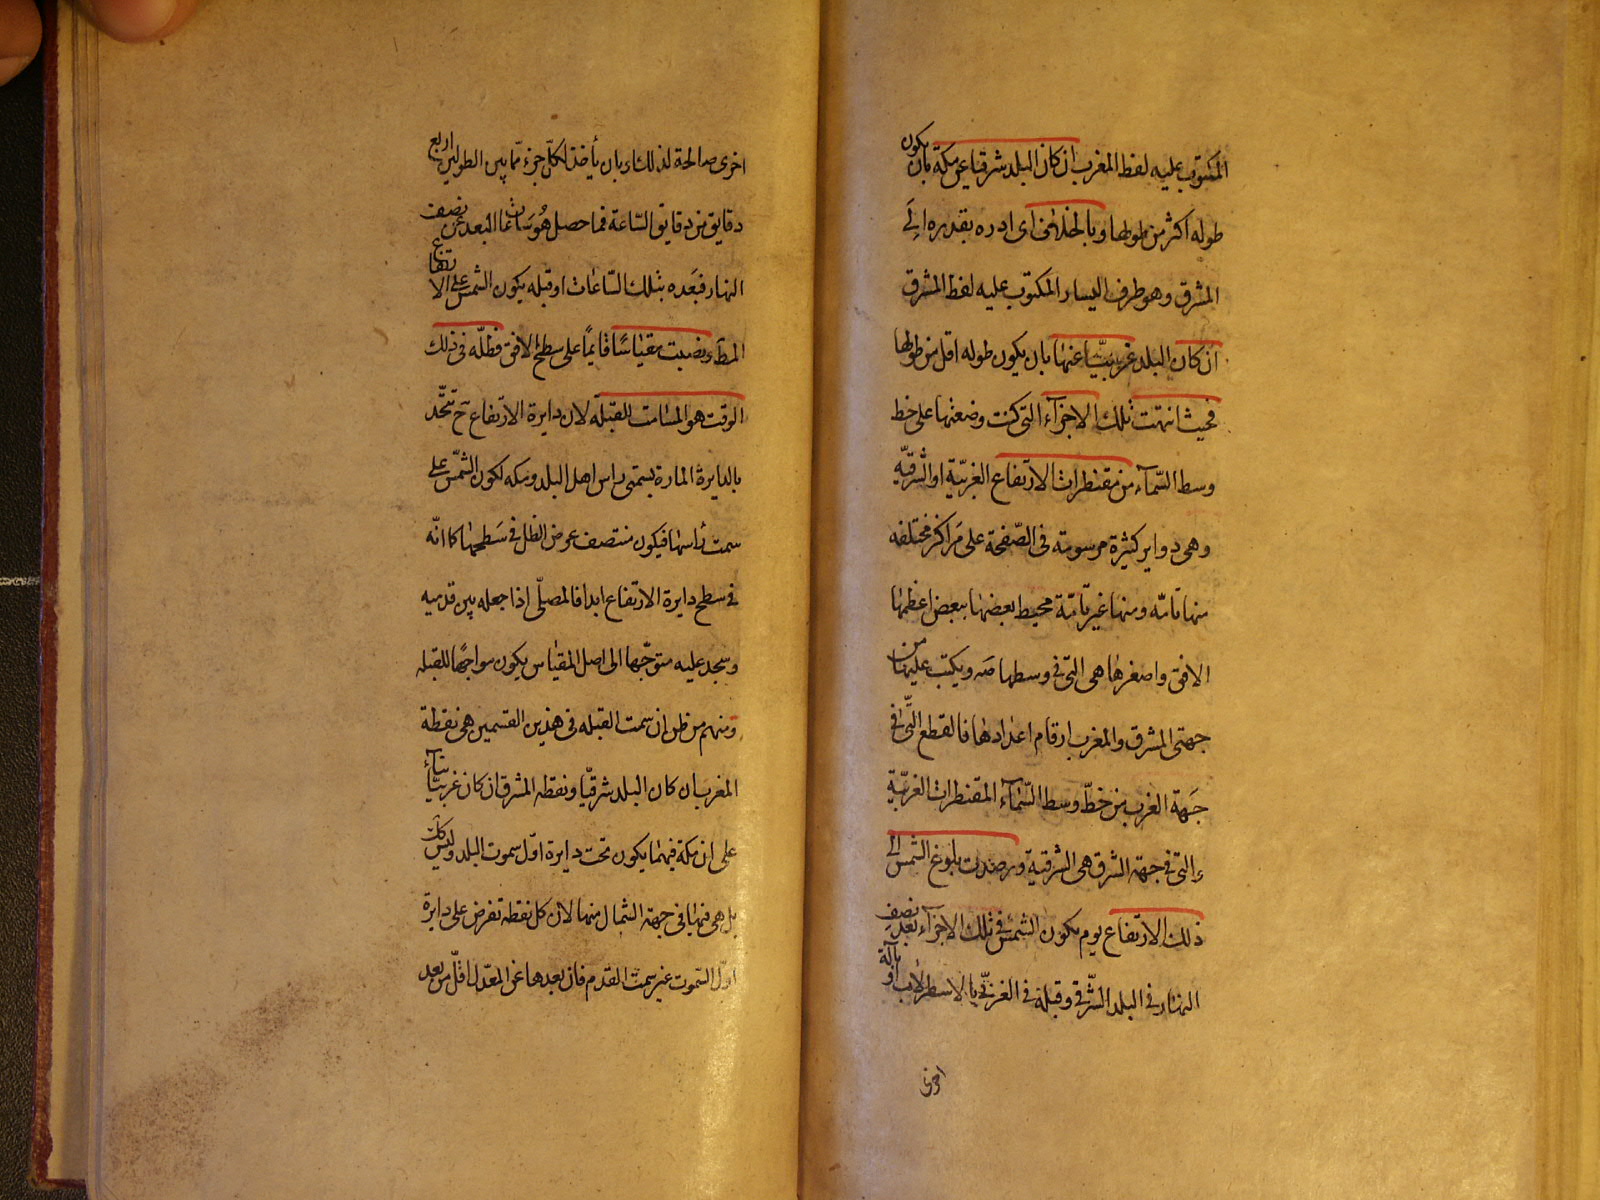 المكتوب عليه لفظ المغرب ان كان البلد شرقيا عن مكة بان يكون
طوله اكثر من طولها وبالخلاف اى ادره بقدره الى
المشرق وهو طرف اليسار المكتوب عليه لفظ المشرق
ان كان البلد غربيّا عنها بان يكون طوله اقل من طولها
فحيث انتهت تلك الاجزآء التى كنت وضعتها على خط
وسط السّمآء من مقنطرات الارتفاع الغربيّة او الشرقيّه
وهى دواير كثيرة مرسومة فى الصّفحة على مراكز مختلفه
منها تامّه ومنها غير تامّة محيط بعضها ببعض اعظمها
الافق واصغرها هى التى فى وسطها صه ويكتب عليها من
جهتى المشرق والمغرب ارقام اعدادها فالقطع الّتى فى
جهة الغرب من خطّ وسط السّمآء المقنطرات الغربيّة
والتى فى جهة الشرق هى الشرقية ورصدت بلوغ الشمس الى
ذلك الارتفاع يوم يكون الشمس فى تلك الاجزآء بعد نصف
النهار فى البلد الشرقى وقبله فى الغربى بالاسطرلاب او بآلة
اخرى
اخرى صالحة لذلك او بان يأخذ لكلّ جزء ممّا بين الطولين اربع
دقايق من دقايق السّاعة فما حصل هو ساعات البعد عن نصف
النهار فبعده بتلك السّاعات او قبله يكون الشمس على الارتفاع
المط ونصبت مقياسًا قايمًا على سطح الافق فظلّه فى ذلك
الوقت هو المسامت للقبله لان دايرة الارتفاع ح تتّحد
بالدايرة المارة بسمتى راس اهل البلد ومكه لكون الشمس على
سمت رأسها فيكون منتصف عرض الظل فى سطحها كما انّه
فى سطح دايرة الارتفاع ابدا فالمصلّى اذا جعله بين قدميه
وسجد عليه متوجّها الى اصل المقياس يكون مواجهًا للقبله
ومنهم من ظن ان سمت القبله فى هذين القسمين هى نقطة
المغرب ان كان البلد شرقيّا ونقطه المشرق ان كان غربيّا بنآء
على ان مكة فيهما يكون تحت دايرة اوّل سموت البلد وليس كذلك
بل هى فيهما فى جهة الشمال منها لان كل نقطه تفرض على دايرة
اوّل السّموت غير سمت القدم فان بعدها عن المعدّل اقلّ من بعد